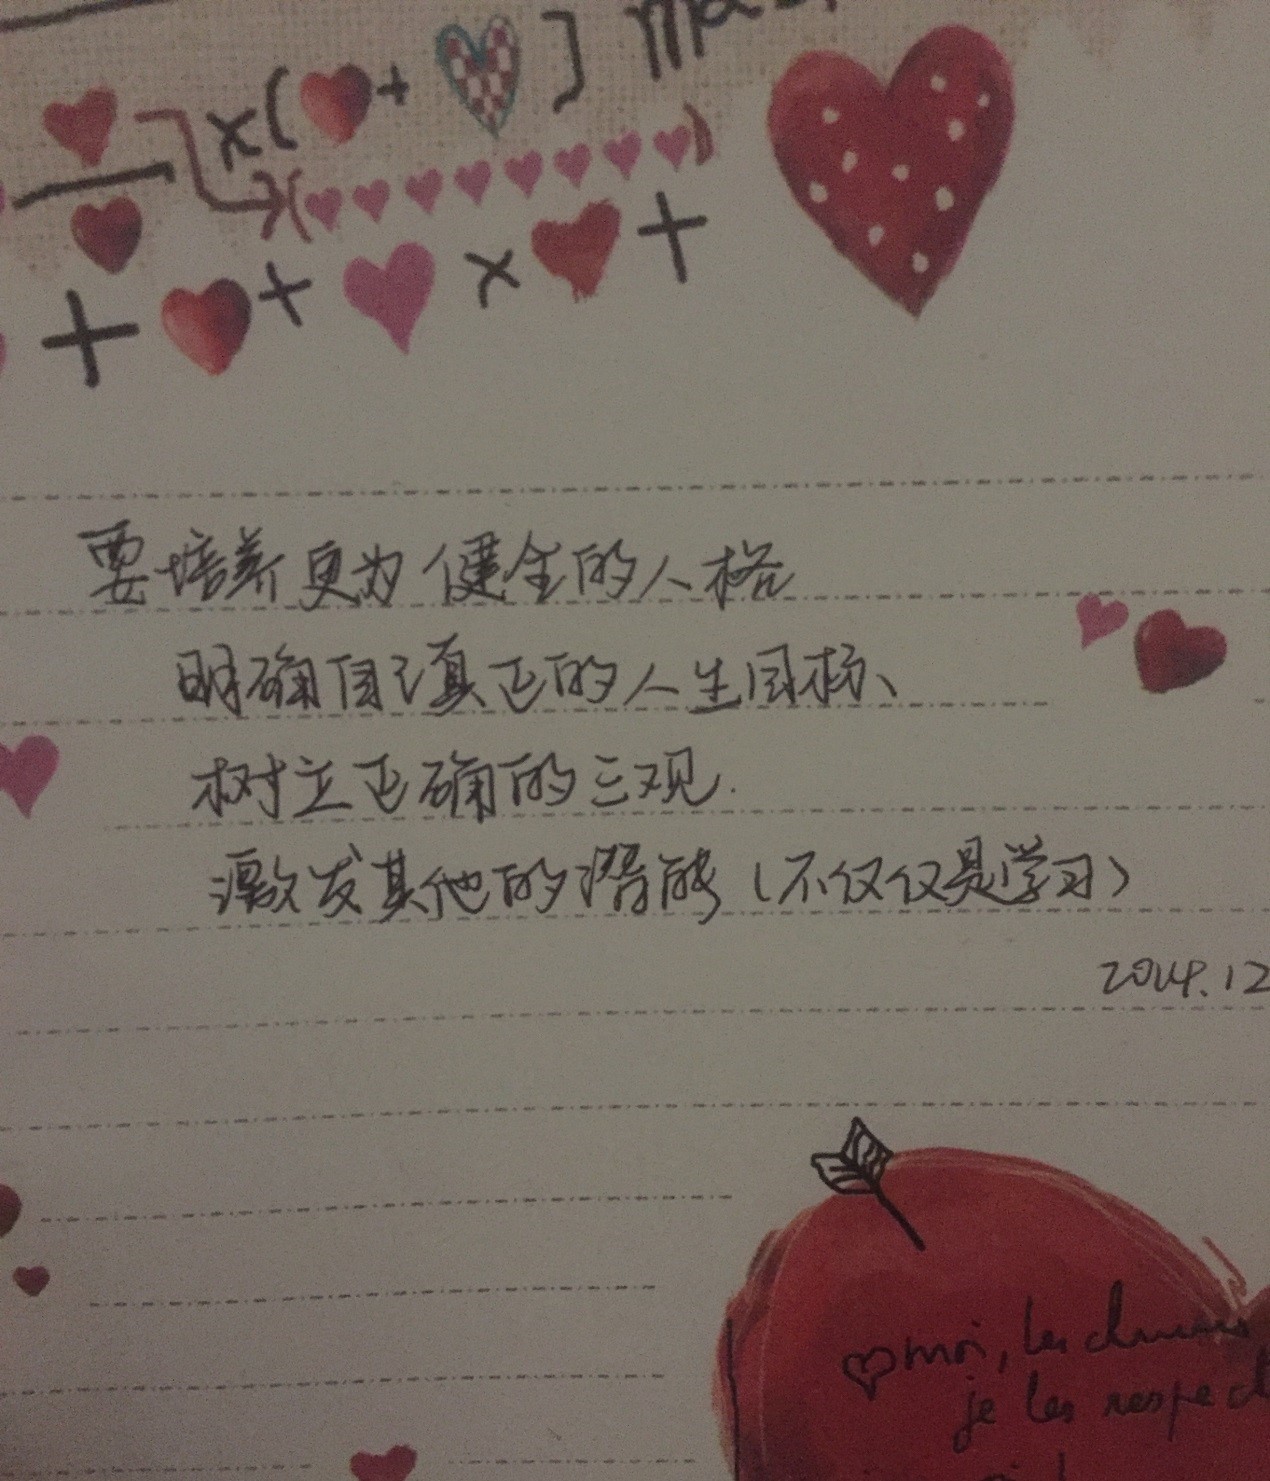 要培养更为健全的人格
明确自己真正的人生目标、
树立正确的三观.
激发其他的潜能（不仅仅是学习）
2014.12
moi, les
je les respect